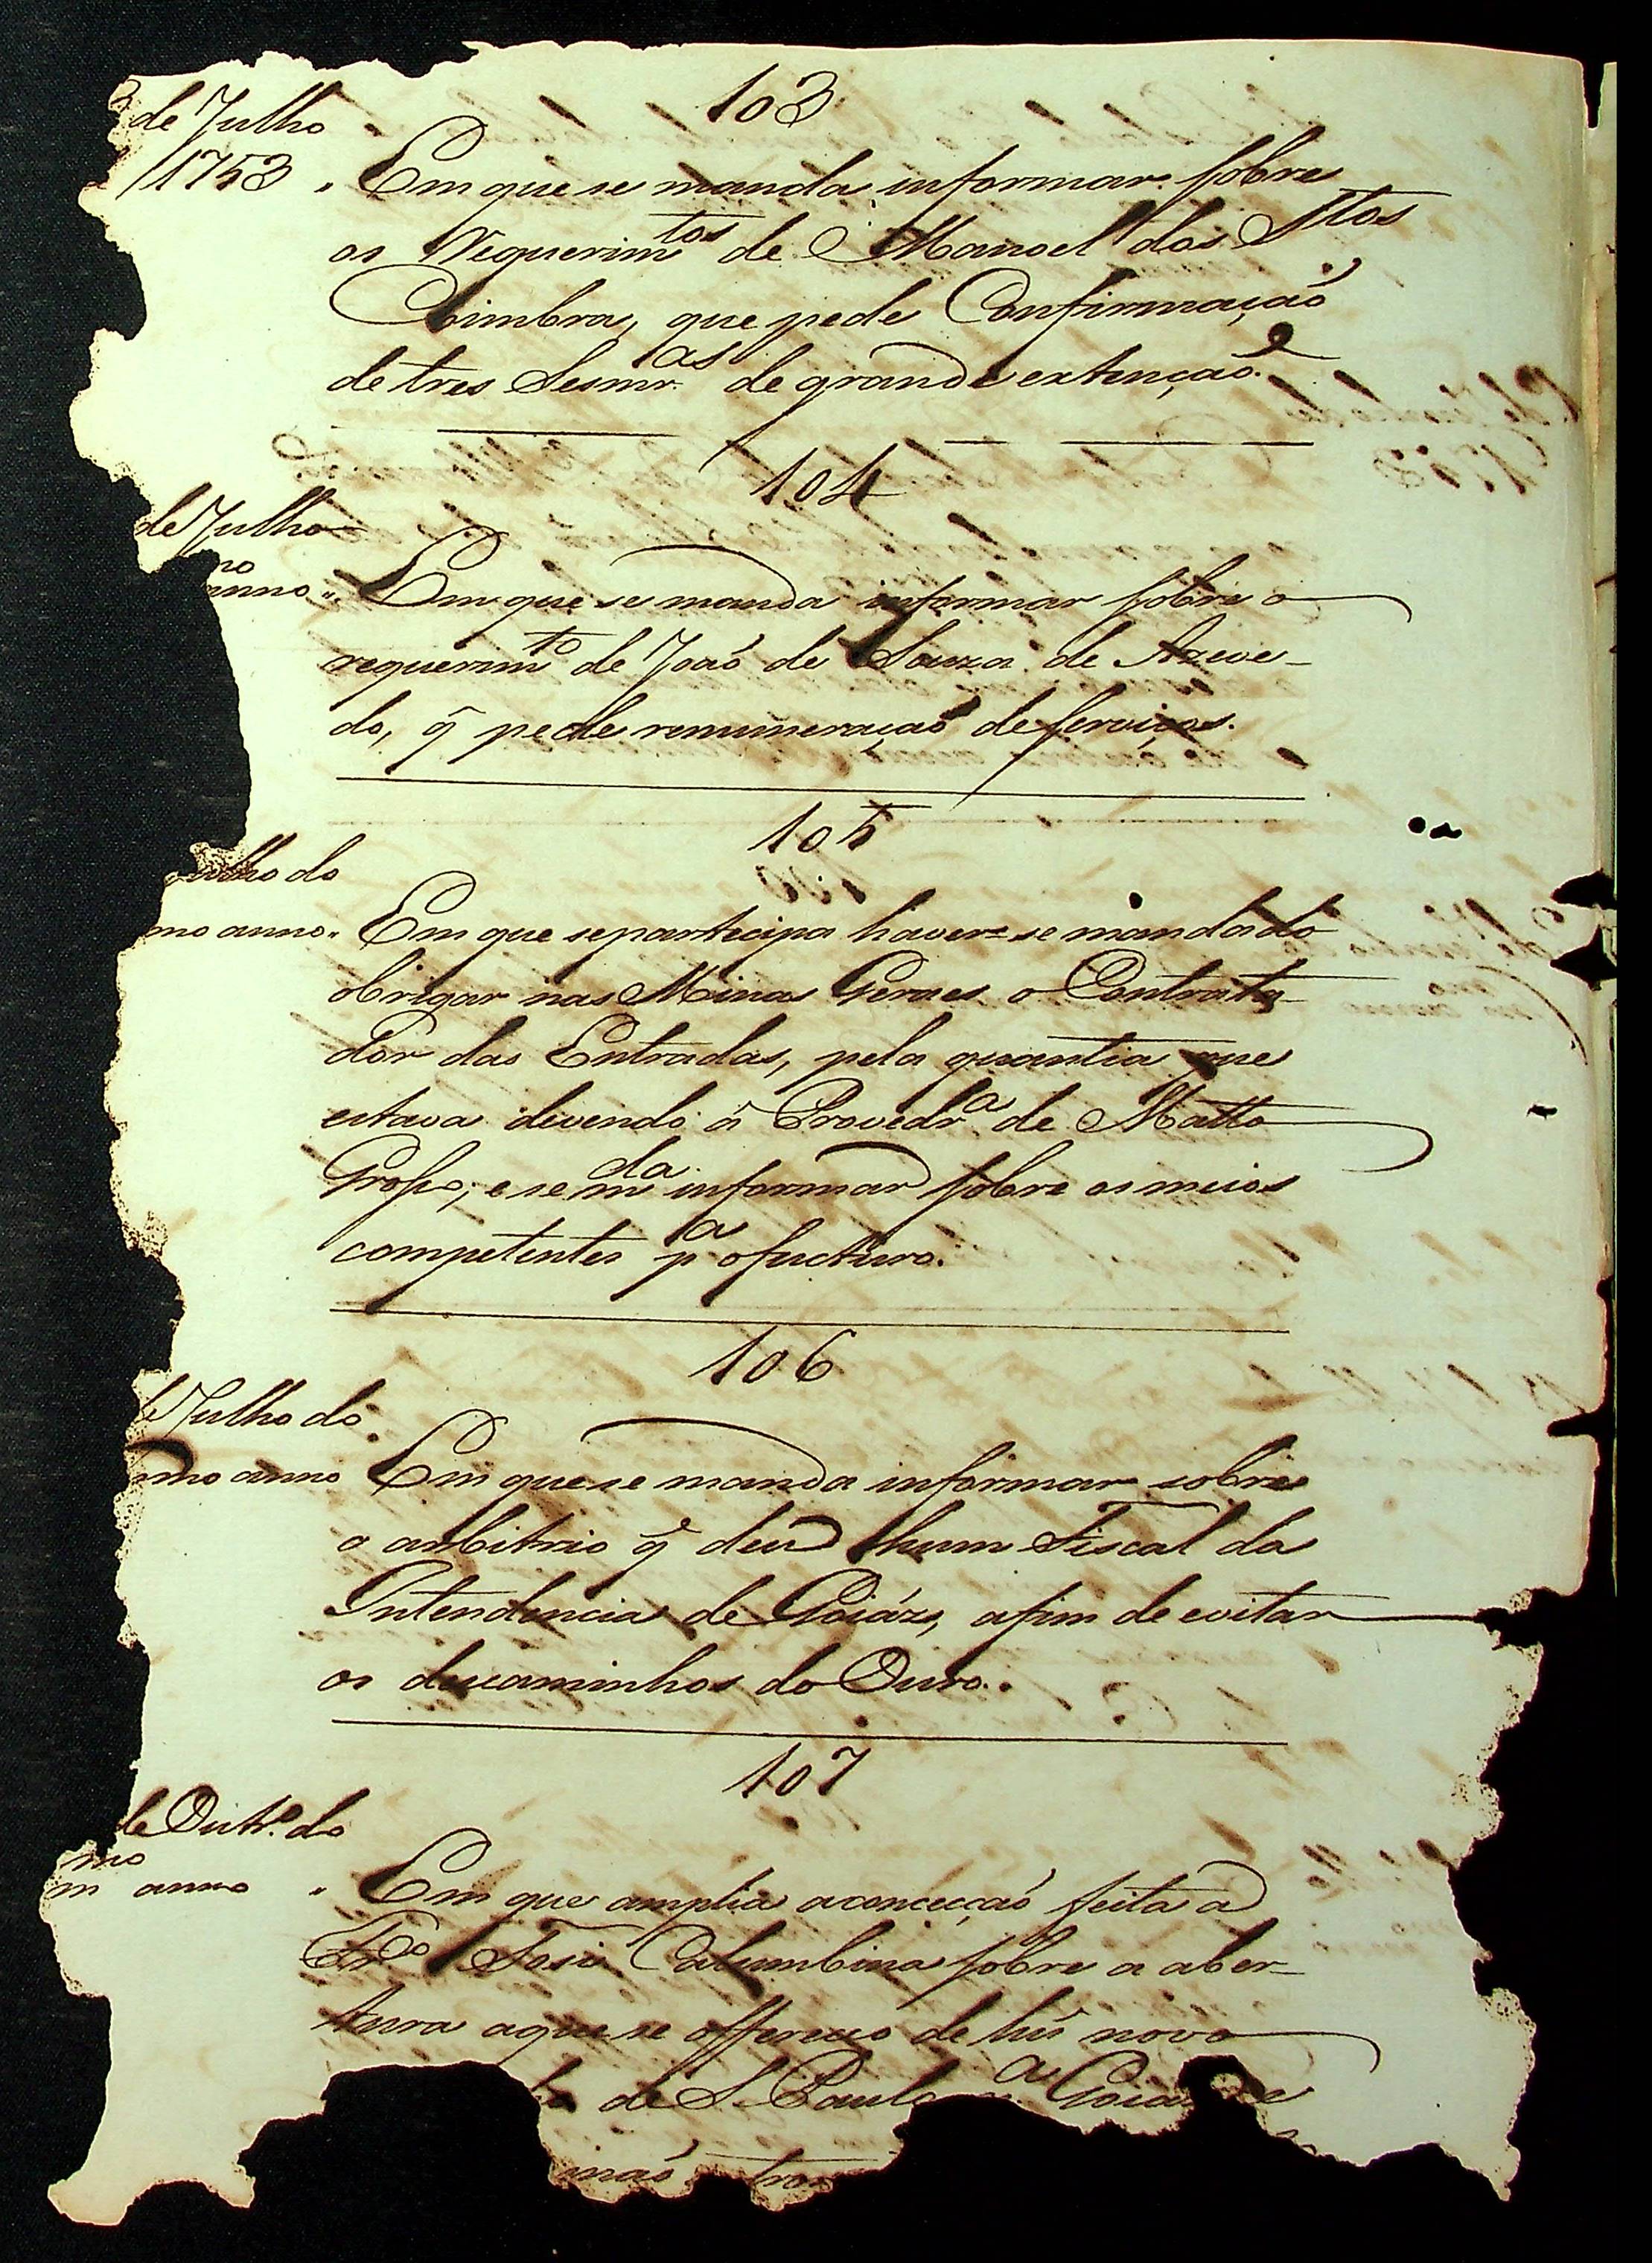 103
de Julho
1753 „ Em que se manda informar sobre
os Requerim.tos de Manoel dos S.tos
Coimbra, que pede Confirmação
de tres Sesmr.as de grande extenção.
104
de Julho
mo anno „ Em que se manda informar sobre o
requerim.to de João de Souza de Azeve-
do, q̃ pede remuneração de serviços.
105
ulho do
mo anno „ Em que se participa haver-se mandado
obrigar nas Minas Geraes o Contrata-
dor das Entradas, pela quantia que
estava devendo á Provedr.a de Matto
Grosso; e se m.da informar sobre os meios
competentes p.a o fucturo.
106
de Julho do
mmo anno Em que se manda informar sobre
o arbitrio q̃ deu hum Fiscal da
Intendencia de Goiázs, afim de evitar
os descaminhos do Ouro.
107
de Outr.o do
m.mo anno „ Em que amplia a concecção feita a
Fr.co Tosi Columbina sobre a aber-
tura a que se offereceo de hũ novo
de S. Paulo p.a Goiaz